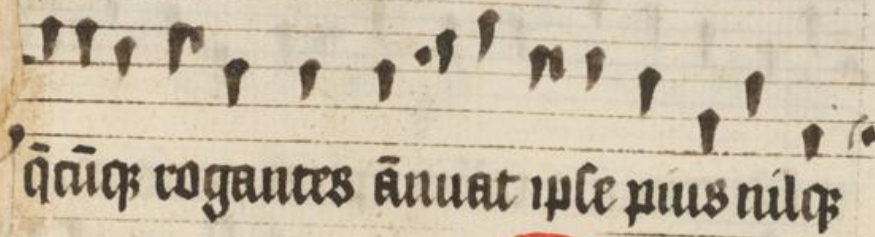 q̄cūqꝫ rogantes ānuat ipſe pius nilqꝫ